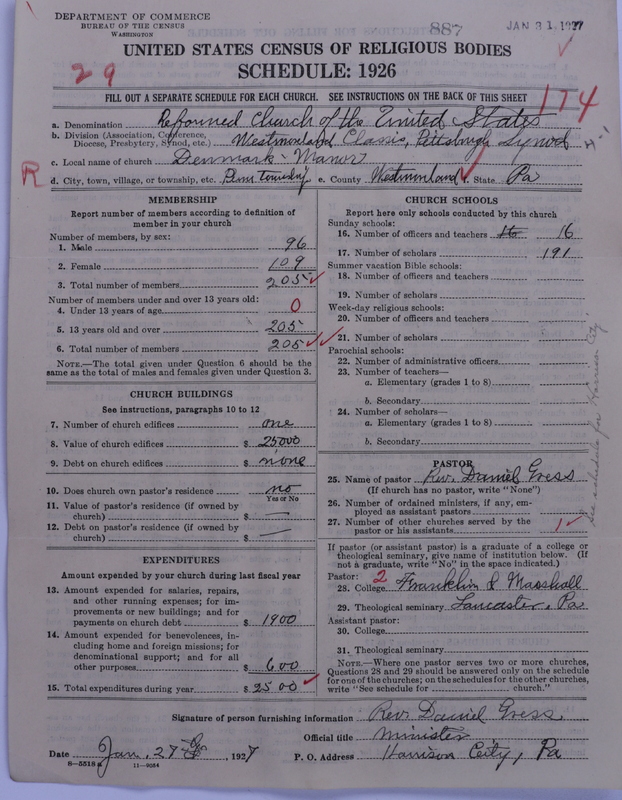 DEPARTMENT OF COMMERCE
BUREAU OF THE CENSUS
WASHINGTON
887
JAN 31 1927
UNITED STATES CENSUS OF RELIGIOUS BODIES
SCHEDULE: 1926
29
FILL OUT A SEPARATE SCHEDULE FOR EACH CHURCH. SEE INSTRUCTIONS ON THE BACK OF THIS SHEET
174
a. Denomination Reformed Church of the United States
b. Division (Association, Conference, Diocese, Presbytery, Synod, etc.) Westmoreland Classis, Pittsburgh Synod
H-1
c. Local name of church Denmark-Manor
R
d. City, town, village, or township, etc. Penn Township e. County Westmoreland f. State Pa
MEMBERSHIP
Report number of members according to definition of
member in your church
Number of members, by sex:
1. Male 96
2. Female 109
3. Total number of members 205
Number of members under and over 13 years old:
4. Under 13 years of age 0
5. 13 years old and over 205
6. Total number of members 205
NOTE.—The total given under Question 6 should be the
same as the total of males and females given under Question 3.
CHURCH BUILDINGS
See instructions, paragraphs 10 to 12
7. Number of church edifices one
8. Value of church edifices $ 25000
9. Debt on church edifices $ none
10. Does church own pastor's residence no
Yes or No
11. Value of pastor's residence (if owned by
church) $ —
12. Debt on pastor's residence (if owned by
church) $ —
EXPENDITURES
Amount expended by your church during last fiscal year
13. Amount expended for salaries, repairs,
and other running expenses; for im-
provements or new buildings; and for
payments on church debt $ 1900
14. Amount expended for benevolences, in-
cluding home and foreign missions; for
denominational support; and for all
other purposes $ 600
15. Total expenditures during year $ 2500
CHURCH SCHOOLS
Report here only schools conducted by this church
Sunday schools:
16. Number of officers and teachers 16
17. Number of scholars 191
Summer vacation Bible schools:
18. Number of officers and teachers
19. Number of scholars
Week-day religious schools:
20. Number of officers and teachers
21. Number of scholars
Parochial schools:
22. Number of administrative officers
23. Number of teachers—
a. Elementary (grades 1 to 8)
b. Secondary
24. Number of scholars—
a. Elementary (grades 1 to 8)
b. Secondary
See schedule for Harrison City
PASTOR
25. Name of pastor Rev. Daniel Gress
(If church has no pastor, write "None")
26. Number of ordained ministers, if any, em-
ployed as assistant pastors
27. Number of other churches served by the
pastor or his assistants 1
If pastor (or assistant pastor) is a graduate of a college or
theological seminary, give name of institution below. (If
not a graduate, write "No" in the space indicated.)
Pastor: 2
28. College Franklin & Marshall
29. Theological seminary Lancaster, Pa
Assistant pastor:
30. College
31. Theological seminary
NOTE.—Where one pastor serves two or more churches,
Questions 28 and 29 should be answered only on the schedule
for one of the churches; on the schedules for the other churches,
write "See schedule for church."
Signature of person furnishing information Rev Daniel Gress
Official title Minister
Date Jan. 27, 1927 P. O. Address Harrison City, Pa
8—5518 a 11—9054